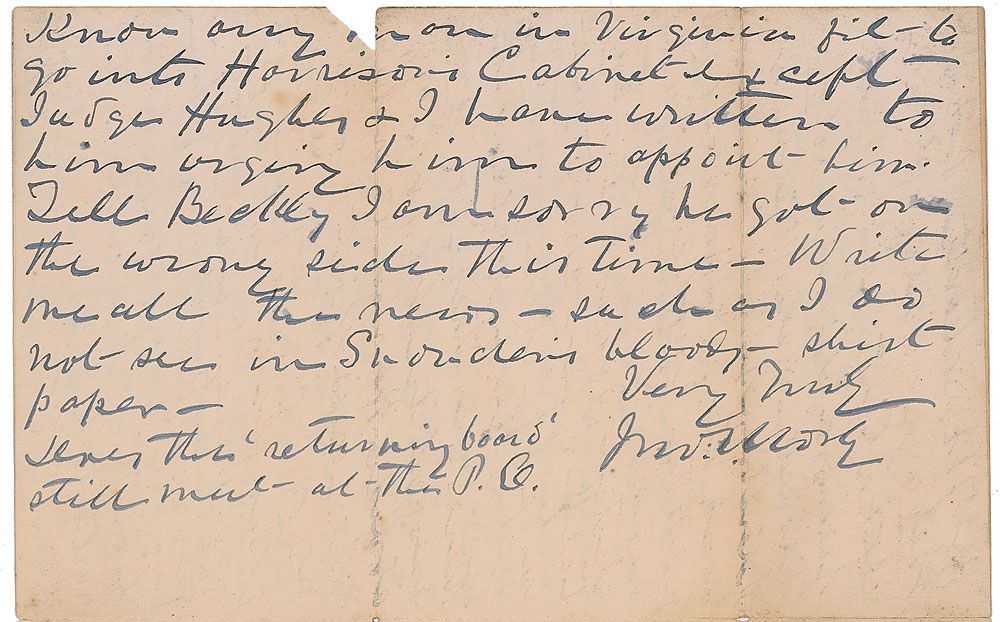 Know any man in Virginia fit to
go into Harrison's Cabinet except
Judge Hughes & I have written to
him urging him to appoint him.
Tell Beckley I am sorry he got on
the wrong side this time – Write
me all the news – such as I do
not see in Snowden's bloody – shirt
paper –
Very Truly
Jno. S. Mosby
Does the 'returning board'
still meet at the P. O.